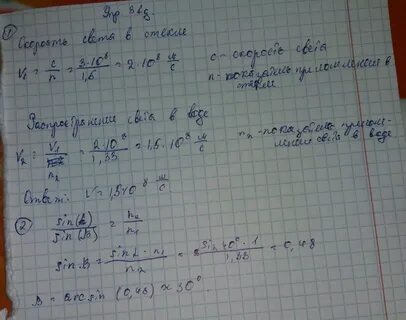 Упр 34д.
① Скорость света в стекле
V₁ = c/n = 3·10⁸/1,5 = 2·10⁸ м/с
c - скорость света
n - показатель преломления в стекле
Распространение света в воде
V₂ = V₁/n₂ = 2·10⁸/1,33 = 1,5·10⁸ м/с
n₂ - показатель преломления света в воде
Ответ: V = 1,5·10⁸ м/с
② sin(α)/sin(β) = n₂/n₁
sin β = sin α · n₁/n₂ = sin 40° · 1/1,33 = 0,48
β = arcsin (0,48) ≈ 30°.